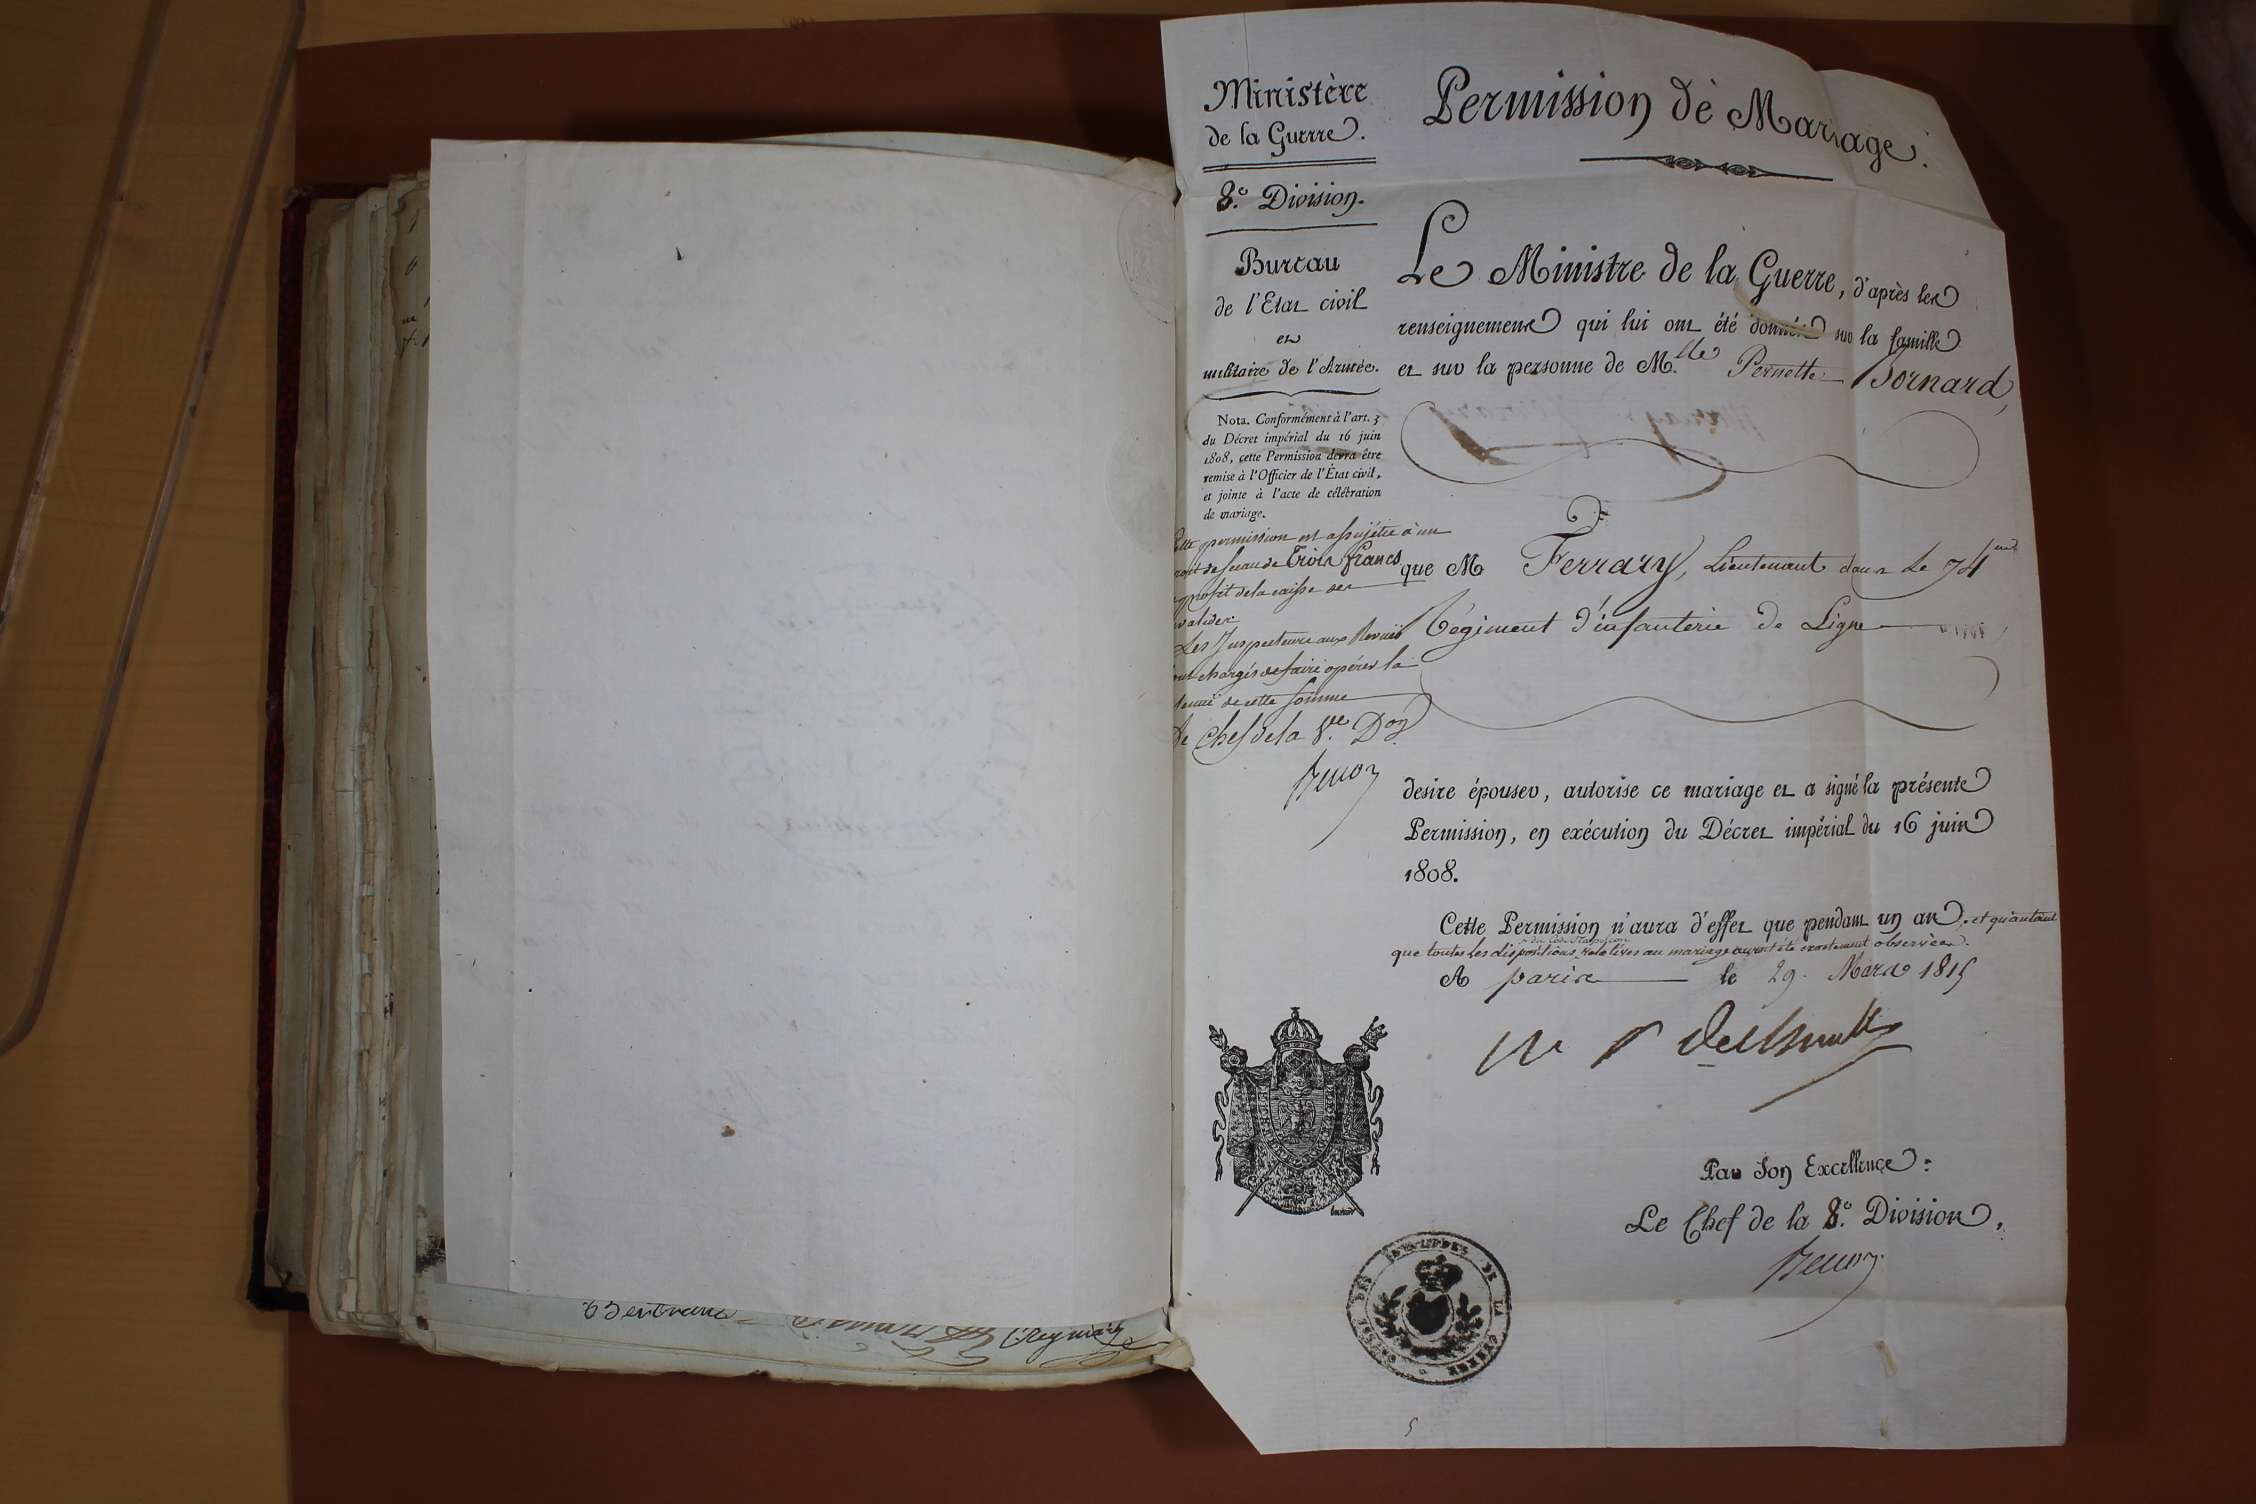 Ministère
de la Guerre.
8.e Division.
Bureau
de l'Etat civil
et
militaire de l'Armée.
Nota. Conformément à l'art. 3
du Décret impérial du 16 juin
1808, cette Permission devra être
remise à l'Officier de l'État civil,
et jointe à l'acte de célébration
de mariage.
permission est assujétie à un
de sceau de Trois francs
profit de la caisse des
Les Inspecteurs aux Revues
chargés de faire opérer la
de cette somme
Le Chef de la 8.e Don
Permission de Mariage.
Le Ministre de la Guerre, d'après les
renseignemens qui lui ont été donnés sur la famille
et sur la personne de M.lle Pernette Bornard,
que M Ferrary, Lieutenant dans le 74me
Régiment d'infanterie de Ligne
desire épouser, autorise ce mariage et a signé la présente
Permission, en exécution du Décret impérial du 16 juin
1808.
Cette Permission n'aura d'effet que pendant un an, et qu'autant
du Code Napoléon
que toutes les dispositions relatives au mariage auront été exactement observées.
A paris le 29 Mars 1815
Par Son Excellence :
Le Chef de la 8.e Division,
DE LA GUERRE
Bertrand